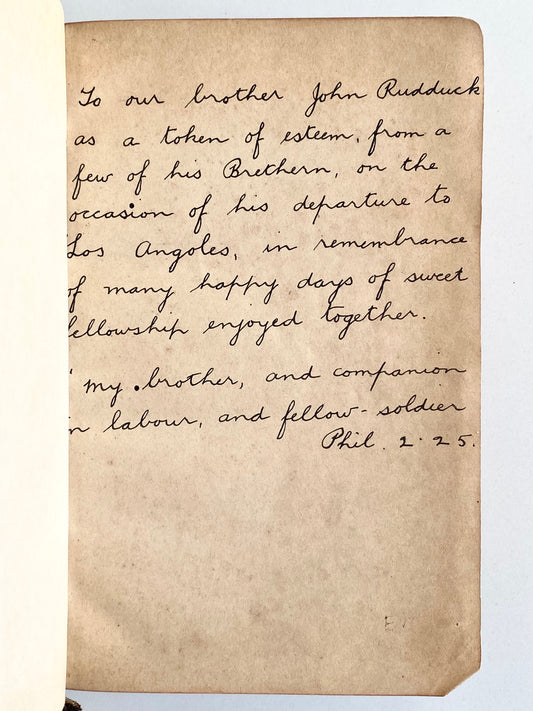 To our brother John Rudduck
as a token of esteem, from a
few of his Brethern, on the
occasion of his departure to
Los Angoles, in remembrance
of many happy days of sweet
fellowship enjoyed together.
" My brother, and companion
in labour, and fellow-soldier
Phil. 2.25.